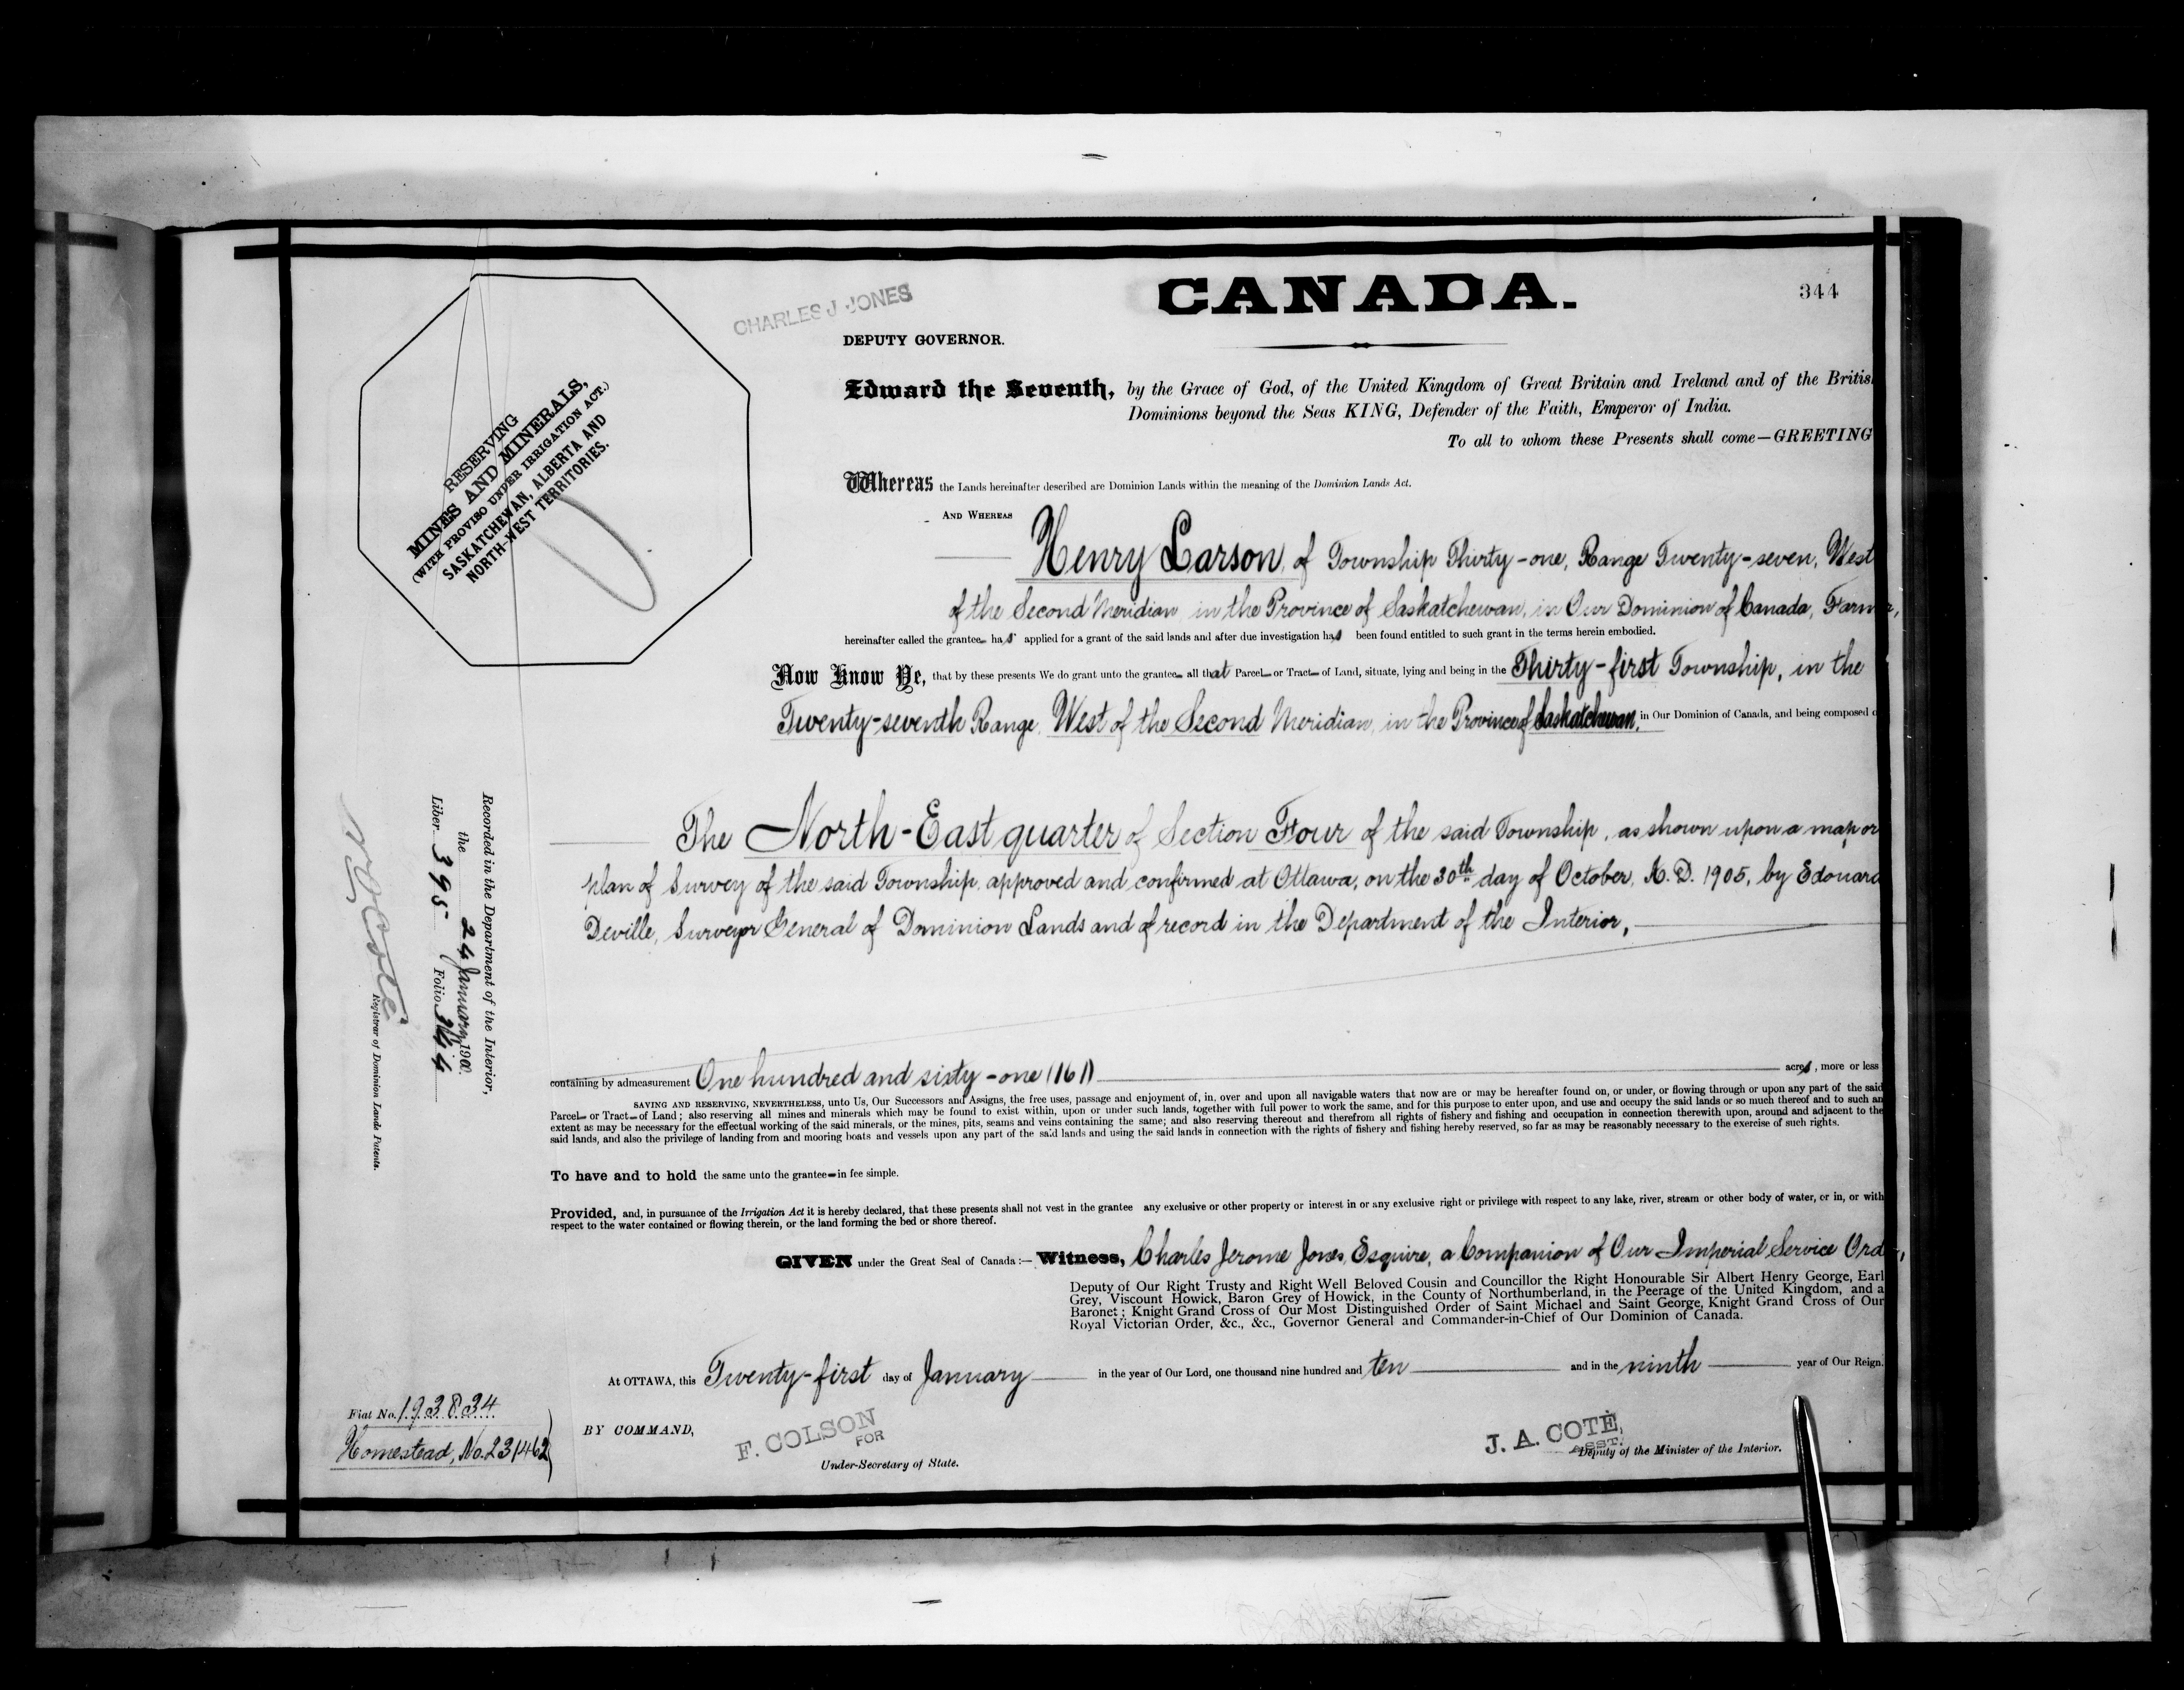 CANADA.
344
CHARLES J JONES
DEPUTY GOVERNOR.
RESERVING
MINES AND MINERALS,
(WITH PROVISO UNDER IRRIGATION ACT.)
SASKATCHEWAN, ALBERTA AND
NORTH-WEST TERRITORIES.
Edward the Seventh, by the Grace of God, of the United Kingdom of Great Britain and Ireland and of the Britis
Dominions beyond the Seas KING, Defender of the Faith, Emperor of India.
To all to whom these Presents shall come—GREETING
Whereas the Lands hereinafter described are Dominion Lands within the meaning of the Dominion Lands Act.
AND WHEREAS
Henry Larson, of Township Thirty-one, Range Twenty-seven, West
of the Second Meridian, in the Province of Saskatchewan, in Our Dominion of Canada, Farmer,
hereinafter called the grantee has applied for a grant of the said lands and after due investigation has been found entitled to such grant in the terms herein embodied.
Now Know Ye, that by these presents We do grant unto the grantee all that Parcel or Tract of Land, situate, lying and being in the Thirty-first Township, in the
Twenty-seventh Range, West of the Second Meridian, in the Province of Saskatchewan, in Our Dominion of Canada, and being composed o
The North-East quarter of Section Four of the said Township, as shown upon a map or
plan of Survey of the said Township, approved and confirmed at Ottawa, on the 30th day of October, A.D. 1905, by Edouard
Deville, Surveyor General of Dominion Lands and of record in the Department of the Interior,
containing by admeasurement One hundred and sixty-one (161) acres, more or less
SAVING AND RESERVING, NEVERTHELESS, unto Us, Our Successors and Assigns, the free uses, passage and enjoyment of, in, over and upon all navigable waters that now are or may be hereafter found on, or under, or flowing through or upon any part of the said
Parcel or Tract of Land; also reserving all mines and minerals which may be found to exist within, upon or under such lands, together with full power to work the same, and for this purpose to enter upon, and use and occupy the said lands or so much thereof and to such an
extent as may be necessary for the effectual working of the said minerals, or the mines, pits, seams and veins containing the same; and also reserving thereout and therefrom all rights of fishery and fishing and occupation in connection therewith upon, around and adjacent to the
said lands, and also the privilege of landing from and mooring boats and vessels upon any part of the said lands and using the said lands in connection with the rights of fishery and fishing hereby reserved, so far as may be reasonably necessary to the exercise of such rights.
To have and to hold the same unto the grantee in fee simple.
Provided, and, in pursuance of the Irrigation Act it is hereby declared, that these presents shall not vest in the grantee any exclusive or other property or interest in or any exclusive right or privilege with respect to any lake, river, stream or other body of water, or in, or with
respect to the water contained or flowing therein, or the land forming the bed or shore thereof.
GIVEN under the Great Seal of Canada:— Witness, Charles Jerome Jones, Esquire, a Companion of Our Imperial Service Order,
Deputy of Our Right Trusty and Right Well Beloved Cousin and Councillor the Right Honourable Sir Albert Henry George, Earl
Grey, Viscount Howick, Baron Grey of Howick, in the County of Northumberland, in the Peerage of the United Kingdom, and a
Baronet; Knight Grand Cross of Our Most Distinguished Order of Saint Michael and Saint George, Knight Grand Cross of Our
Royal Victorian Order, &c., &c., Governor General and Commander-in-Chief of Our Dominion of Canada.
At OTTAWA, this Twenty-first day of January in the year of Our Lord, one thousand nine hundred and ten and in the ninth year of Our Reign.
BY COMMAND,
F. COLSON
FOR
Under-Secretary of State.
J. A. COTÉ,
ASST.
Deputy of the Minister of the Interior.
Recorded in the Department of the Interior,
the 24 January, 1900.
Liber 395 Folio 344
N O Coté
Registrar of Dominion Lands Patents.
Fiat No. 193834
Homestead, No. 231462